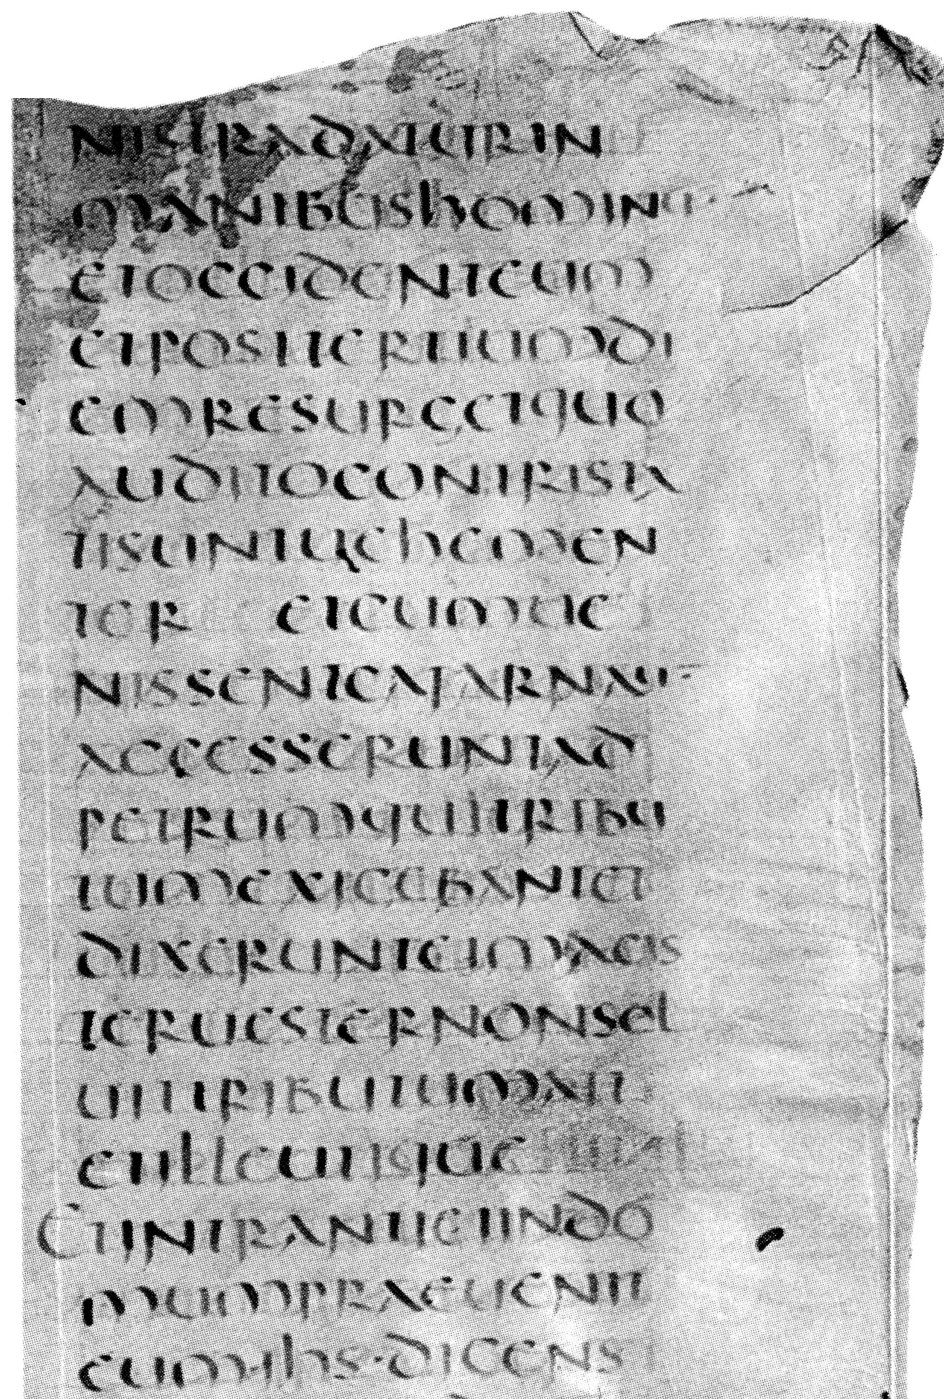 NISTRADATURIN
MANIBUSHOMINU·
ETOCCIDENTEUM
ETPOSTTERTIUMDI
EMRESURGETQUO
AUDITOCONTRISTA
TISUNTUEHEMEN
TER ETCUMUE
NISSENTCAFARNAU
ACCESSERUNTAD
PETRUMQUITRIBU
TUMEXIGEBANTET
DIXERUNTEIMAGIS
TERUESTERNONSOL
UITTRIBUTUMAIT
ETILLEUTIQUE
ETINTRANTIEIINDO
MUMPRAEUENIT
EUM·IHS·DICENS